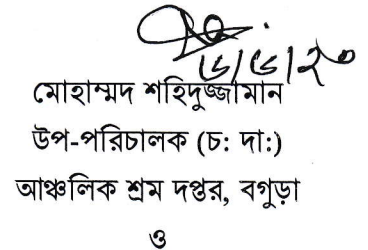 ৬/৬/২০
মোহাম্মদ শহিদুজ্জামান
উপ-পরিচালক (চ: দা:)
আঞ্চলিক শ্রম দপ্তর, বগুড়া
ও